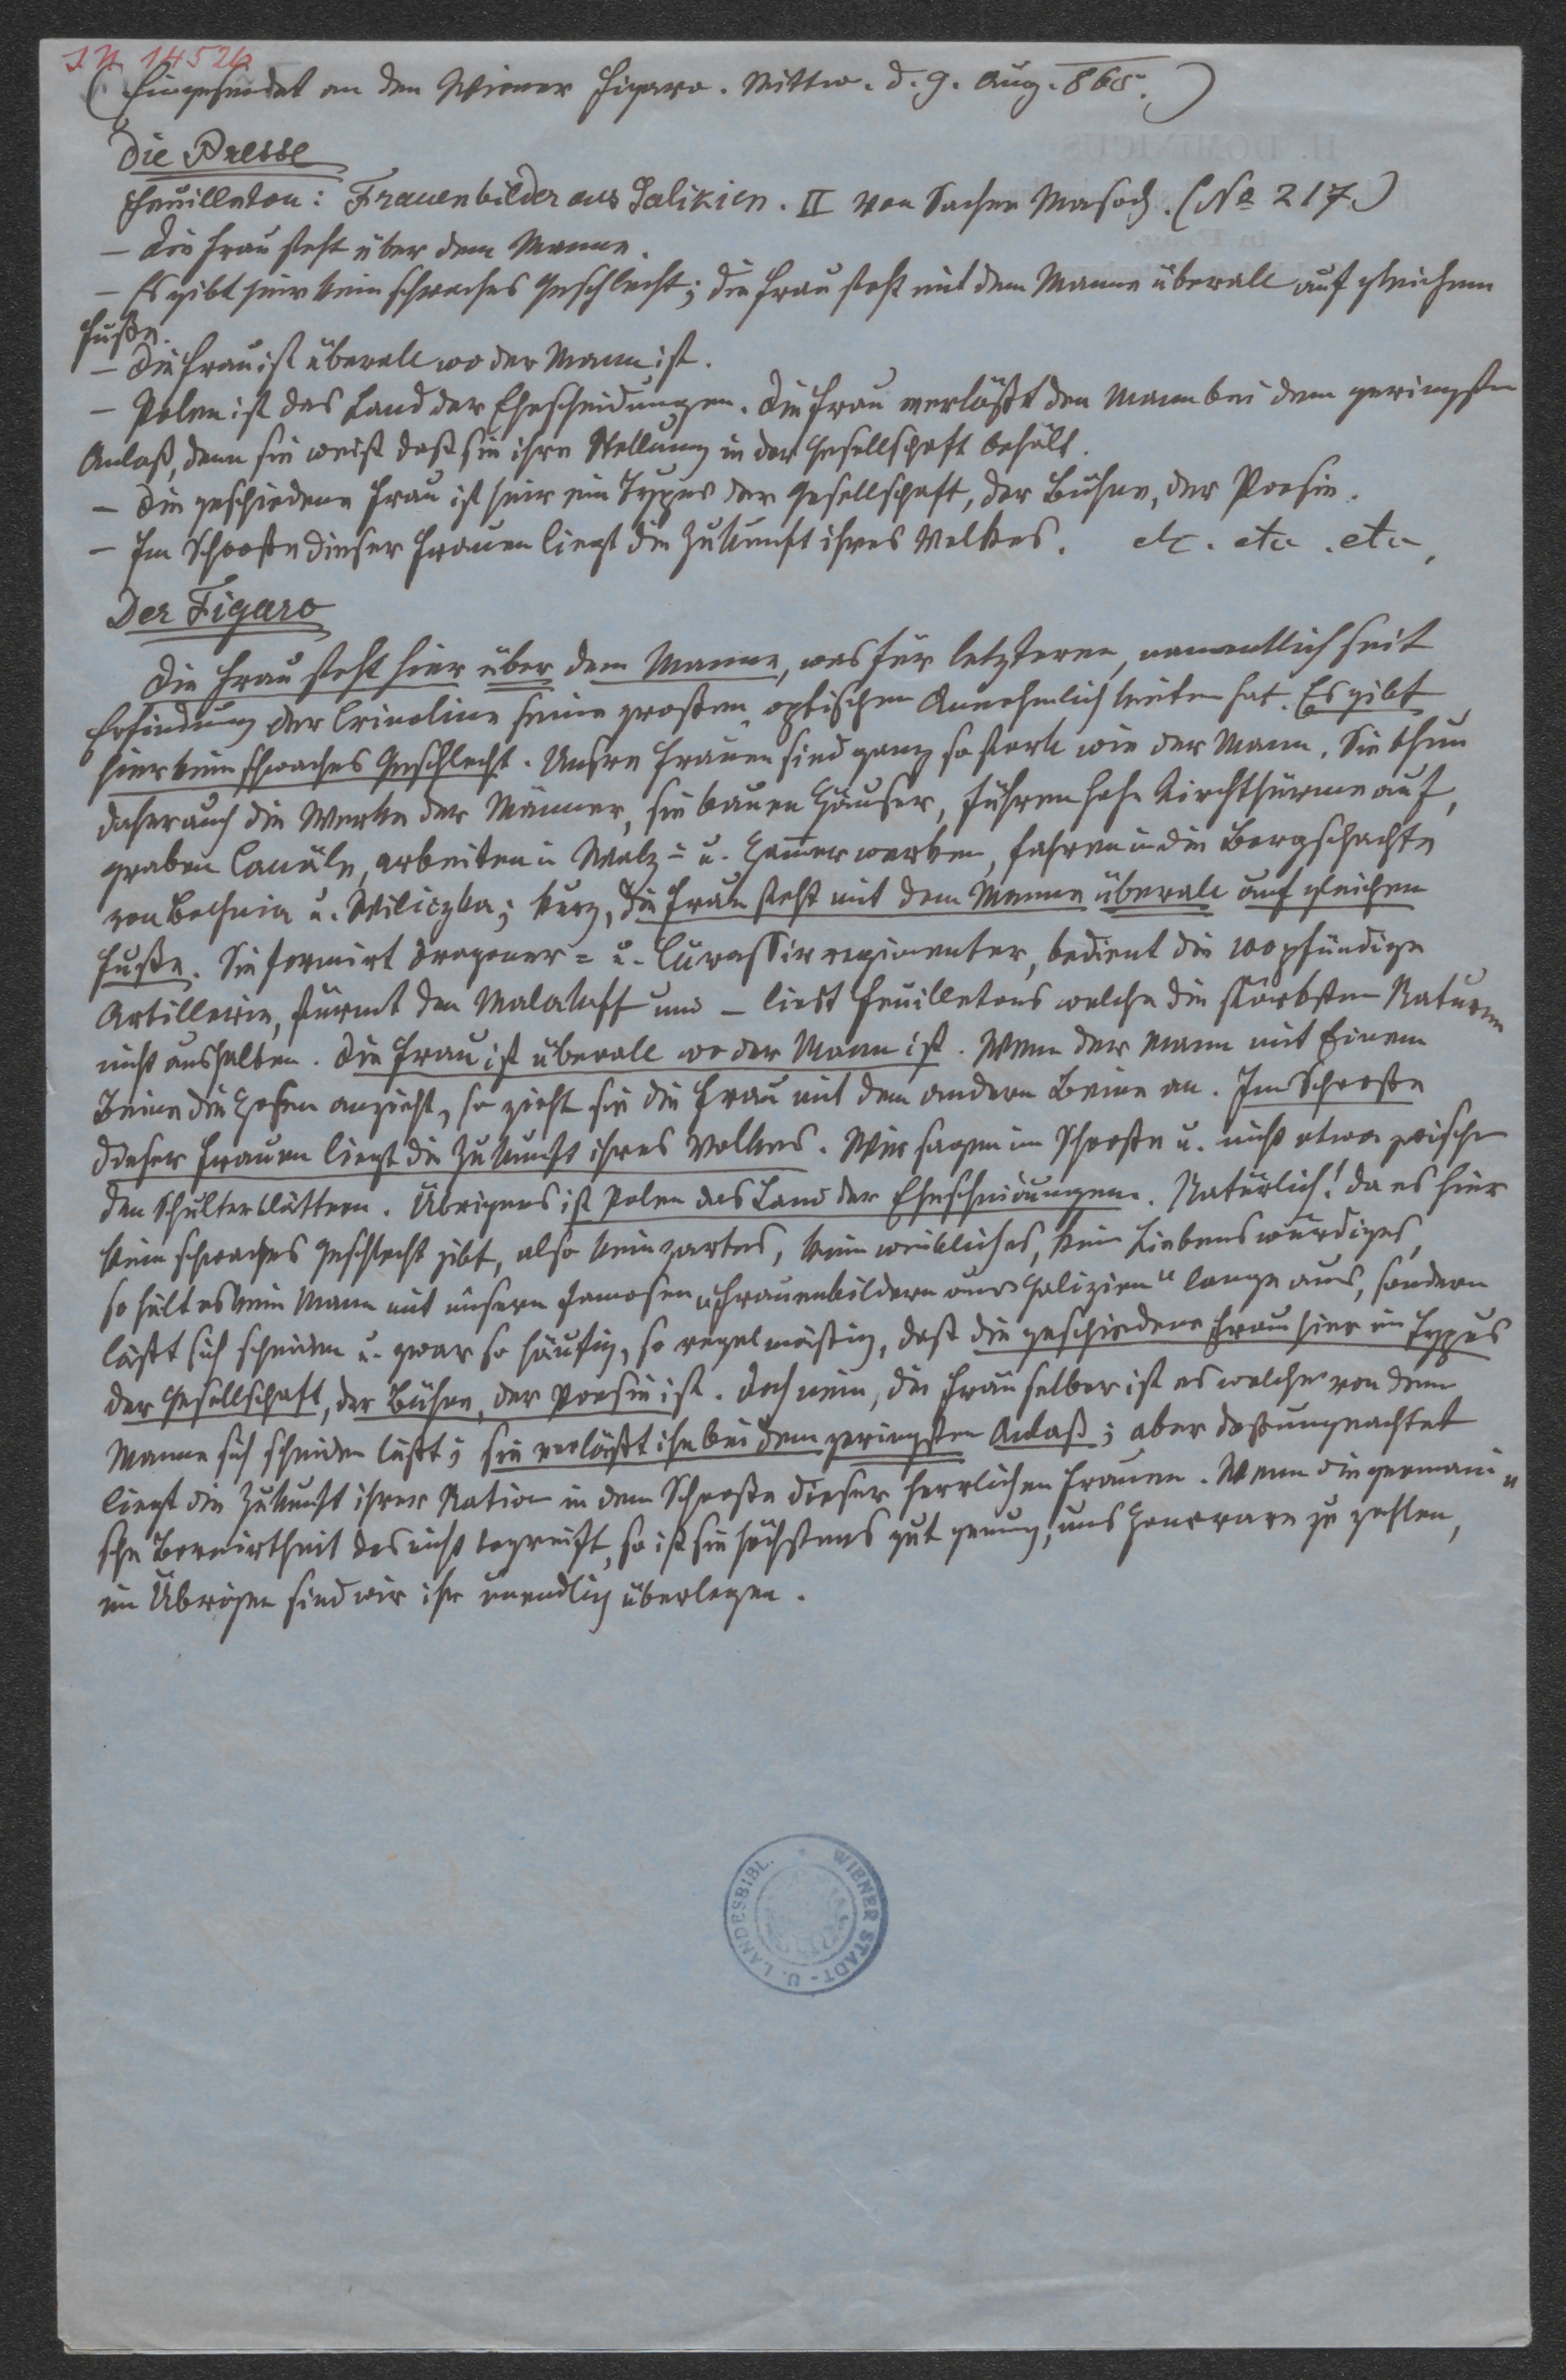 I N 14526
(Eingesendet an den Wiener Figaro. Mittw. d. 9. Aug. 865.)
Die Presse
Feuilleton: Frauenbilder aus Galizien. II von Sacher Masoch. (No 217.)
– Die Frau steht über dem Manne.
– Es gibt hier kein schwaches Geschlecht; die Frau steht mit dem Manne überall auf gleichem
Fuße.
– Die Frau ist überall wo der Mann ist.
– Polen ist das Land der Ehescheidungen. Die Frau verläßt den Mann bei dem geringsten
Anlaß, denn sie weiß daß sie ihre Stellung in der Gesellschaft behält.
– Die geschiedene Frau ist hier ein Typus der Gesellschaft, der Bühne, der Poesie.
– Im Schooße dieser Frauen liegt die Zukunft ihres Volkes. etc. etc. etc.
Der Figaro
Die Frau steht hier über dem Manne, was für letzteren, namentlich seit
Erfindung der Crinoline seine großen optischen Annehmlichkeiten hat. Es gibt
hier kein schwaches Geschlecht. Unsre Frauen sind ganz so stark wie der Mann. Sie thun
daher auch die Werke der Männer, sie bauen Häuser, führen hohe Kirchthürme auf,
graben Canäle, arbeiten in Walz- u. Hammerwerken, fahren in die Bergschachte
von Bochnia u. Wiliczka; kurz, die Frau steht mit dem Manne überall auf gleichem
Fuße. Sie formirt Dragoner- u. Cürassirregimenter, bedient die 100pfündige
Artillerie, stürmt den Malakoff und – liest Feuilletons welche die stärksten Naturen
nicht aushalten. Die Frau ist überall wo der Mann ist. Wenn der Mann mit Einem
Beine die Hosen anzieht, so zieht sie die Frau mit dem andern Beine an. Im Schooße
dieser Frauen liegt die Zukunft ihres Volkes. Wir sagen im Schooße u. nicht etwa zwischen
den Schulterblättern. Übrigens ist Polen das Land der Ehescheidungen. Natürlich! da es hier
kein schwaches Geschlecht gibt, also kein zartes, kein weibliches, kein liebenswürdiges,
so hält es kein Mann mit unsern famosen „Frauenbildern aus Galizien“ lange aus, sondern
läßt sich scheiden u. zwar so häufig, so regelmäßig, daß die geschiedene Frau hier ein Typus
der Gesellschaft, der Bühne, der Poesie ist. Doch nein, die Frau selber ist es welche von dem
Manne sich scheiden läßt; sie verläßt ihn bei dem geringsten Anlaß; aber deßungeachtet
liegt die Zukunft ihrer Nation in dem Schooße dieser herrlichen Frauen. Wenn die germani-
sche Bornirtheit das nicht begreift, so ist sie höchstens gut genug, uns Honorare zu zahlen,
im Übrigen sind wir ihr unendlich überlegen.
WIENER STADT- U. LANDESBIBL.